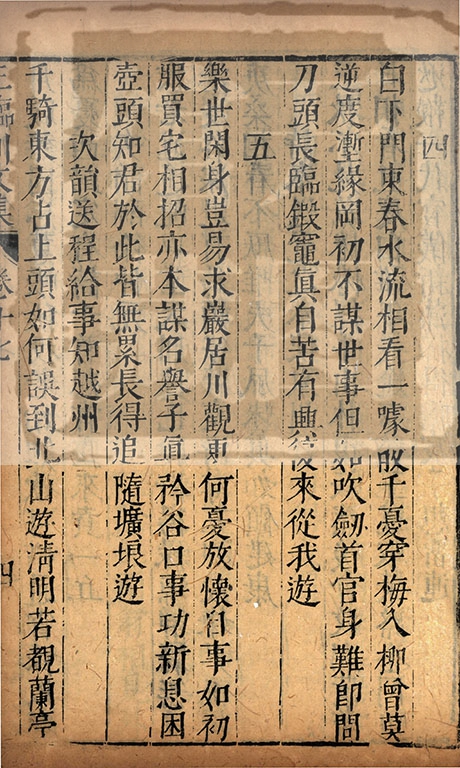 四
白下門東春水流相看一噱散千憂穿梅入柳曾莫
逆度塹緣岡初不謀世事但如吹劒首官身難即問
刀頭長臨鍛竈眞自苦有興復來從我遊
五
樂世閑身豈易求巖居川觀更何憂放懷自事如初
服買宅相招亦本謀名譽子眞矜谷口事功新息困
壺頭知君於此皆無累長得追隨壙埌遊
次韻送程給事知越州
千騎東方占上頭如何誤到北山遊清明若覩蘭亭
王臨川文集 卷十七 四